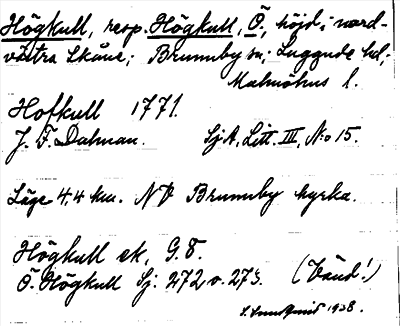 Högkull, resp. Högkull, Ö., höjd i nord-
västra Skåne; Brunnby sn; Luggude hd;
Malmöhus l.
Hofkull 1771.
J. F. Dahman. Sj. A, Litt. III, No 15.
Läge 4.4 km. NV Brunnby kyrka.
Högkull ek, G. 8.
Ö. Högkull Sj. 272 o. 273. (Vänd!)
1928.